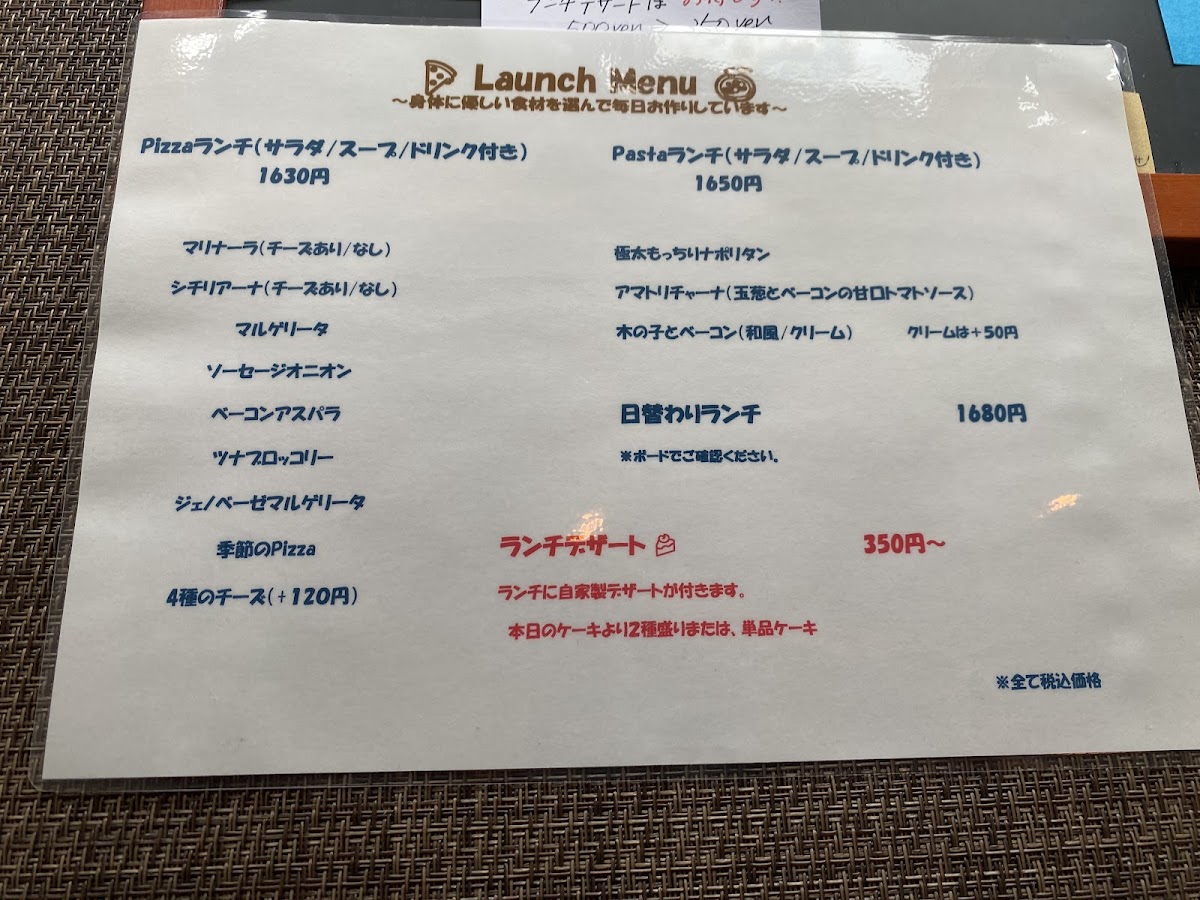 ランチデザートは
500yen
Launch Menu
～身体に優しい食材を選んで毎日お作りしています～
Pizzaランチ(サラダ/スープ/ドリンク付き)
1630円
マリナーラ(チーズあり/なし)
シチリアーナ(チーズあり/なし)
マルゲリータ
ソーセージオニオン
ベーコンアスパラ
ツナブロッコリー
ジェノベーゼマルゲリータ
季節のPizza
4種のチーズ(+120円)
Pastaランチ(サラダ/スープ/ドリンク付き)
1650円
極太もっちりナポリタン
アマトリチャーナ(玉葱とベーコンの甘口トマトソース)
木の子とベーコン(和風/クリーム) クリームは+50円
日替わりランチ 1680円
※ボードでご確認ください。
ランチデザート 350円～
ランチに自家製デザートが付きます。
本日のケーキより2種盛りまたは、単品ケーキ
※全て税込価格